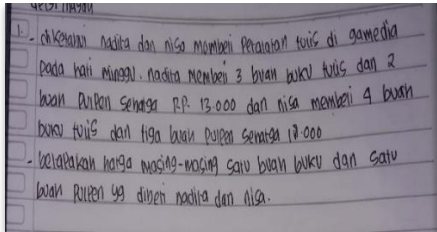 1. - diketahui nadita dan nisa membeli Peralatan tulis di gamedia
pada hari minggu. nadita membeli 3 buah buku tulis dan 2
buah Pulpen seharga RP. 13.000 dan nisa membeli 4 buah
buku tulis dan tiga buah pulpen seharga 18.000
- berapakah harga masing-masing satu buah buku dan satu
buah Pulpen yg dibeli nadita dan nisa.